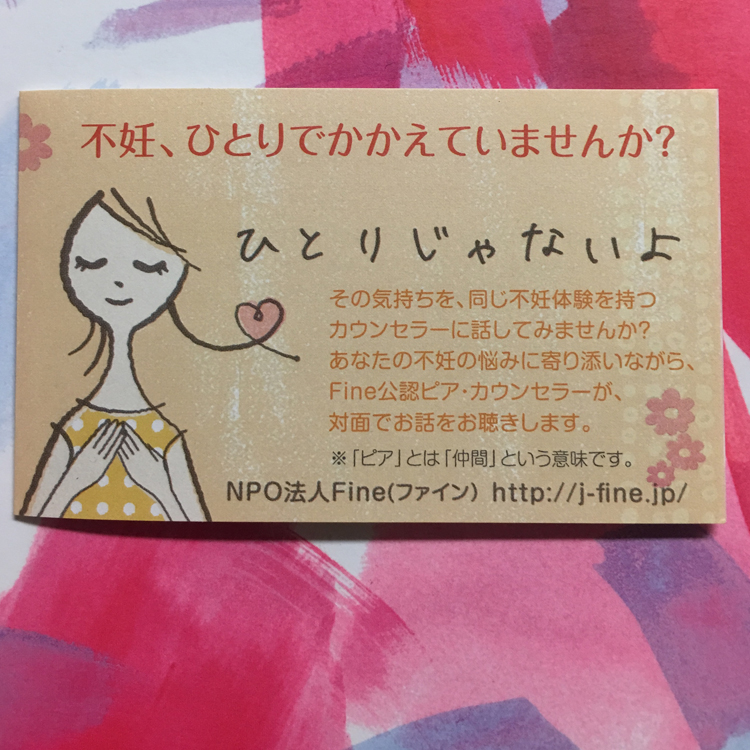 不妊、ひとりでかかえていませんか?
ひとりじゃないよ
その気持ちを、同じ不妊体験を持つ
カウンセラーに話してみませんか?
あなたの不妊の悩みに寄り添いながら、
Fine公認ピア・カウンセラーが、
対面でお話をお聴きします。
※「ピア」とは「仲間」という意味です。
NPO法人Fine(ファイン) http://j-fine.jp/